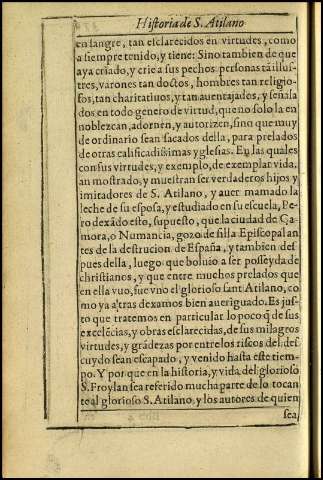 Historia de S. Atilano
en sangre, tan esclarecidos en virtudes, como
a siempre tenido, y tiene: Sino tambien de que
aya criado, y crie a sus pechos personas tã illus-
tres, varones tan doctos, hombres tan religio-
sos, tan charitatiuos, y tan auentajados, y señala
dos en todo genero de virtud, que no solo la en
noblezcan, adornen, y autorizen, sino que muy
de ordinario sean sacados della, para prelados
de otras calificadissimas yglesias. En las quales
con sus virtudes, y exemplo, de exemplar vida,
an mostrado, y muestran ser verdaderos hijos y
imitadores de S. Atilano, y auer mamado la
leche de su esposa, y estudiado en su escuela, Pe-
ro dexãdo esto, supuesto, que la ciudad de Ça-
mora, o Numancia, gozo de silla Episcopal an
tes de la destrucion de España, y tambien des
pues della, luego que boluio a ser posseyda de
christianos, y que entre muchos prelados que
en ella vuo, fue vno el glorioso sant Atilano, co
mo ya atras dexamos bien aueriguado. Es jus-
to que tratemos en particular lo poco q̃ de sus
excelẽcias, y obras esclarecidas, de sus milagros
virtudes, y grãdezas por entre los riscos del des
cuydo sean escapado, y venido hasta este tiem-
po. Y por que en la historia, y vida del glorioso
S. Froylan sea referido mucha parte de lo tocan
te al glorioso S. Atilano, y los autores de quien
sea